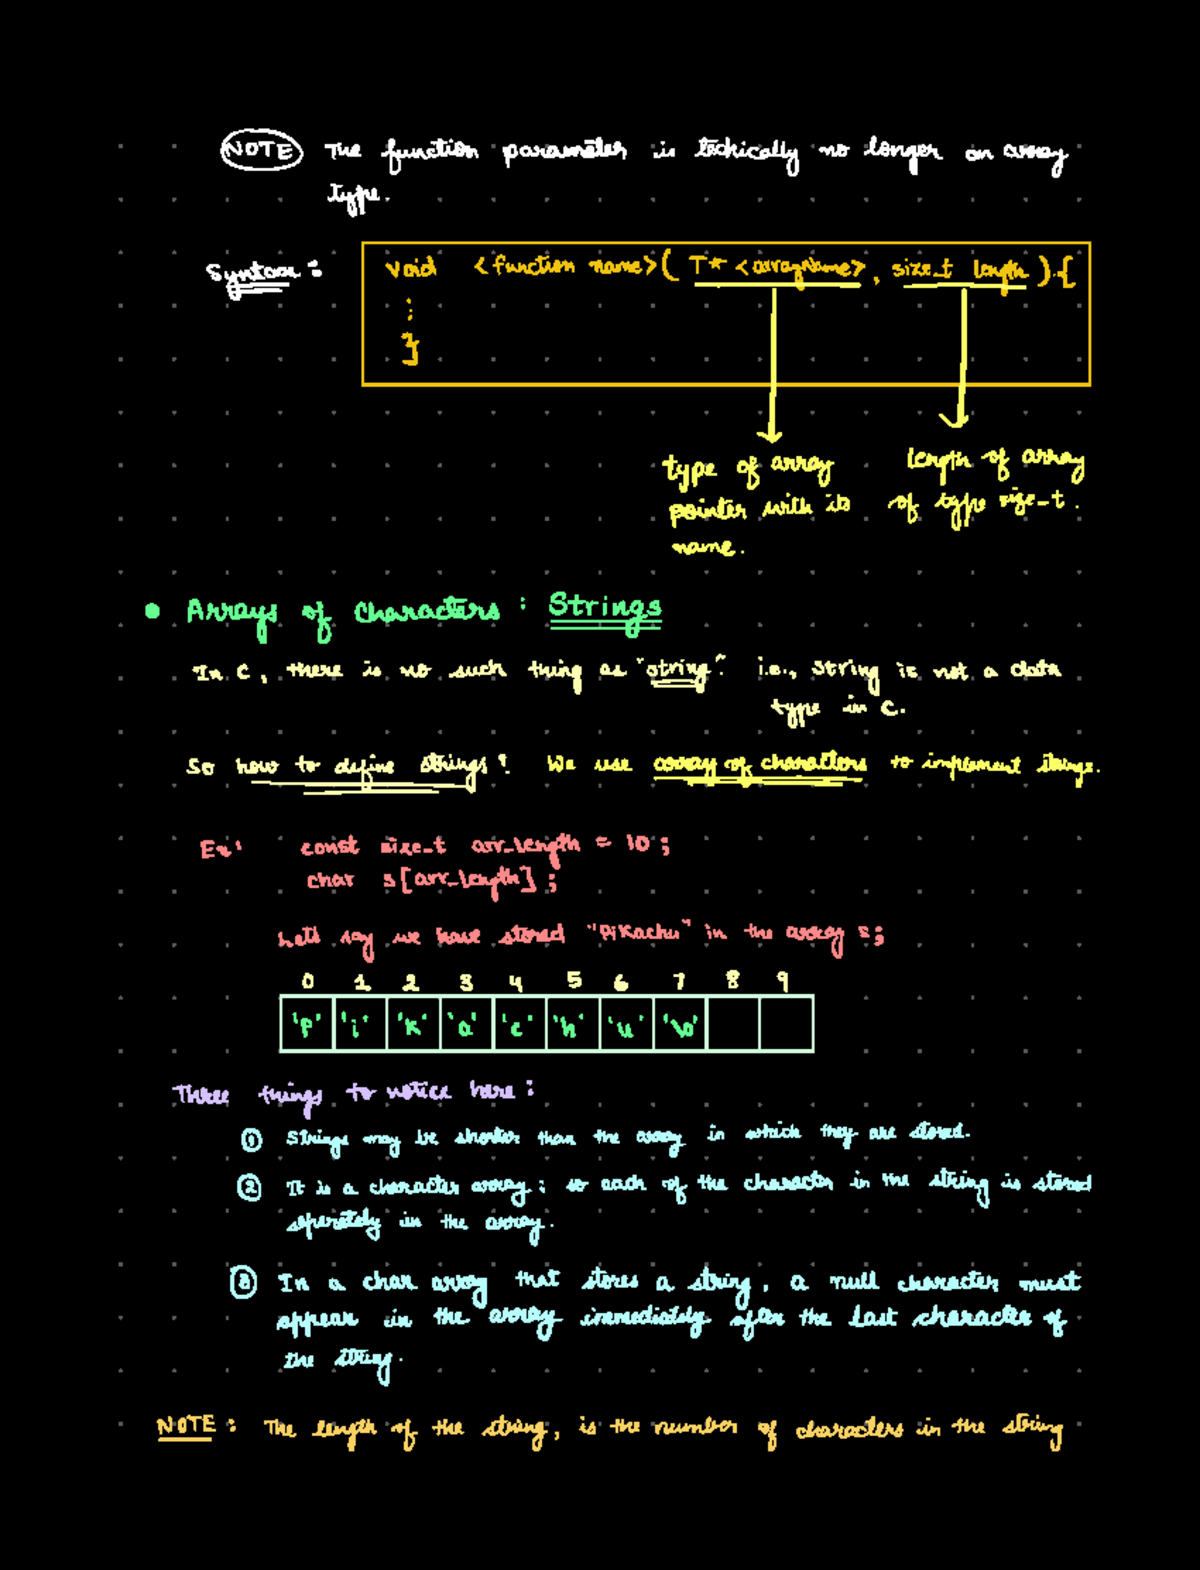 NOTE The function parameter is techically no longer an array
type.
Syntax : void <function name>( T* <arrayName>, size_t length ) {
:
}
type of array
pointer with its
name.
length of array
of type size_t.
• Arrays of characters : Strings
In C, there is no such thing as "string". i.e., string is not a data
type in C.
So how to define strings? We use array of characters to implement strings.
Ex: const size_t arr_length = 10;
char s[arr_length];
Let's say we have stored "Pikachu" in the array s;
0 1 2 3 4 5 6 7 8 9
'P' 'i' 'k' 'a' 'c' 'h' 'u' '\0'
Three things to notice here :
① Strings may be shorter than the array in which they are stored.
② It is a character array; so each of the character in the string is stored
seperately in the array.
③ In a char array that stores a string, a null character must
appear in the array immediately after the last character of
the string.
NOTE : The length of the string, is the number of characters in the string